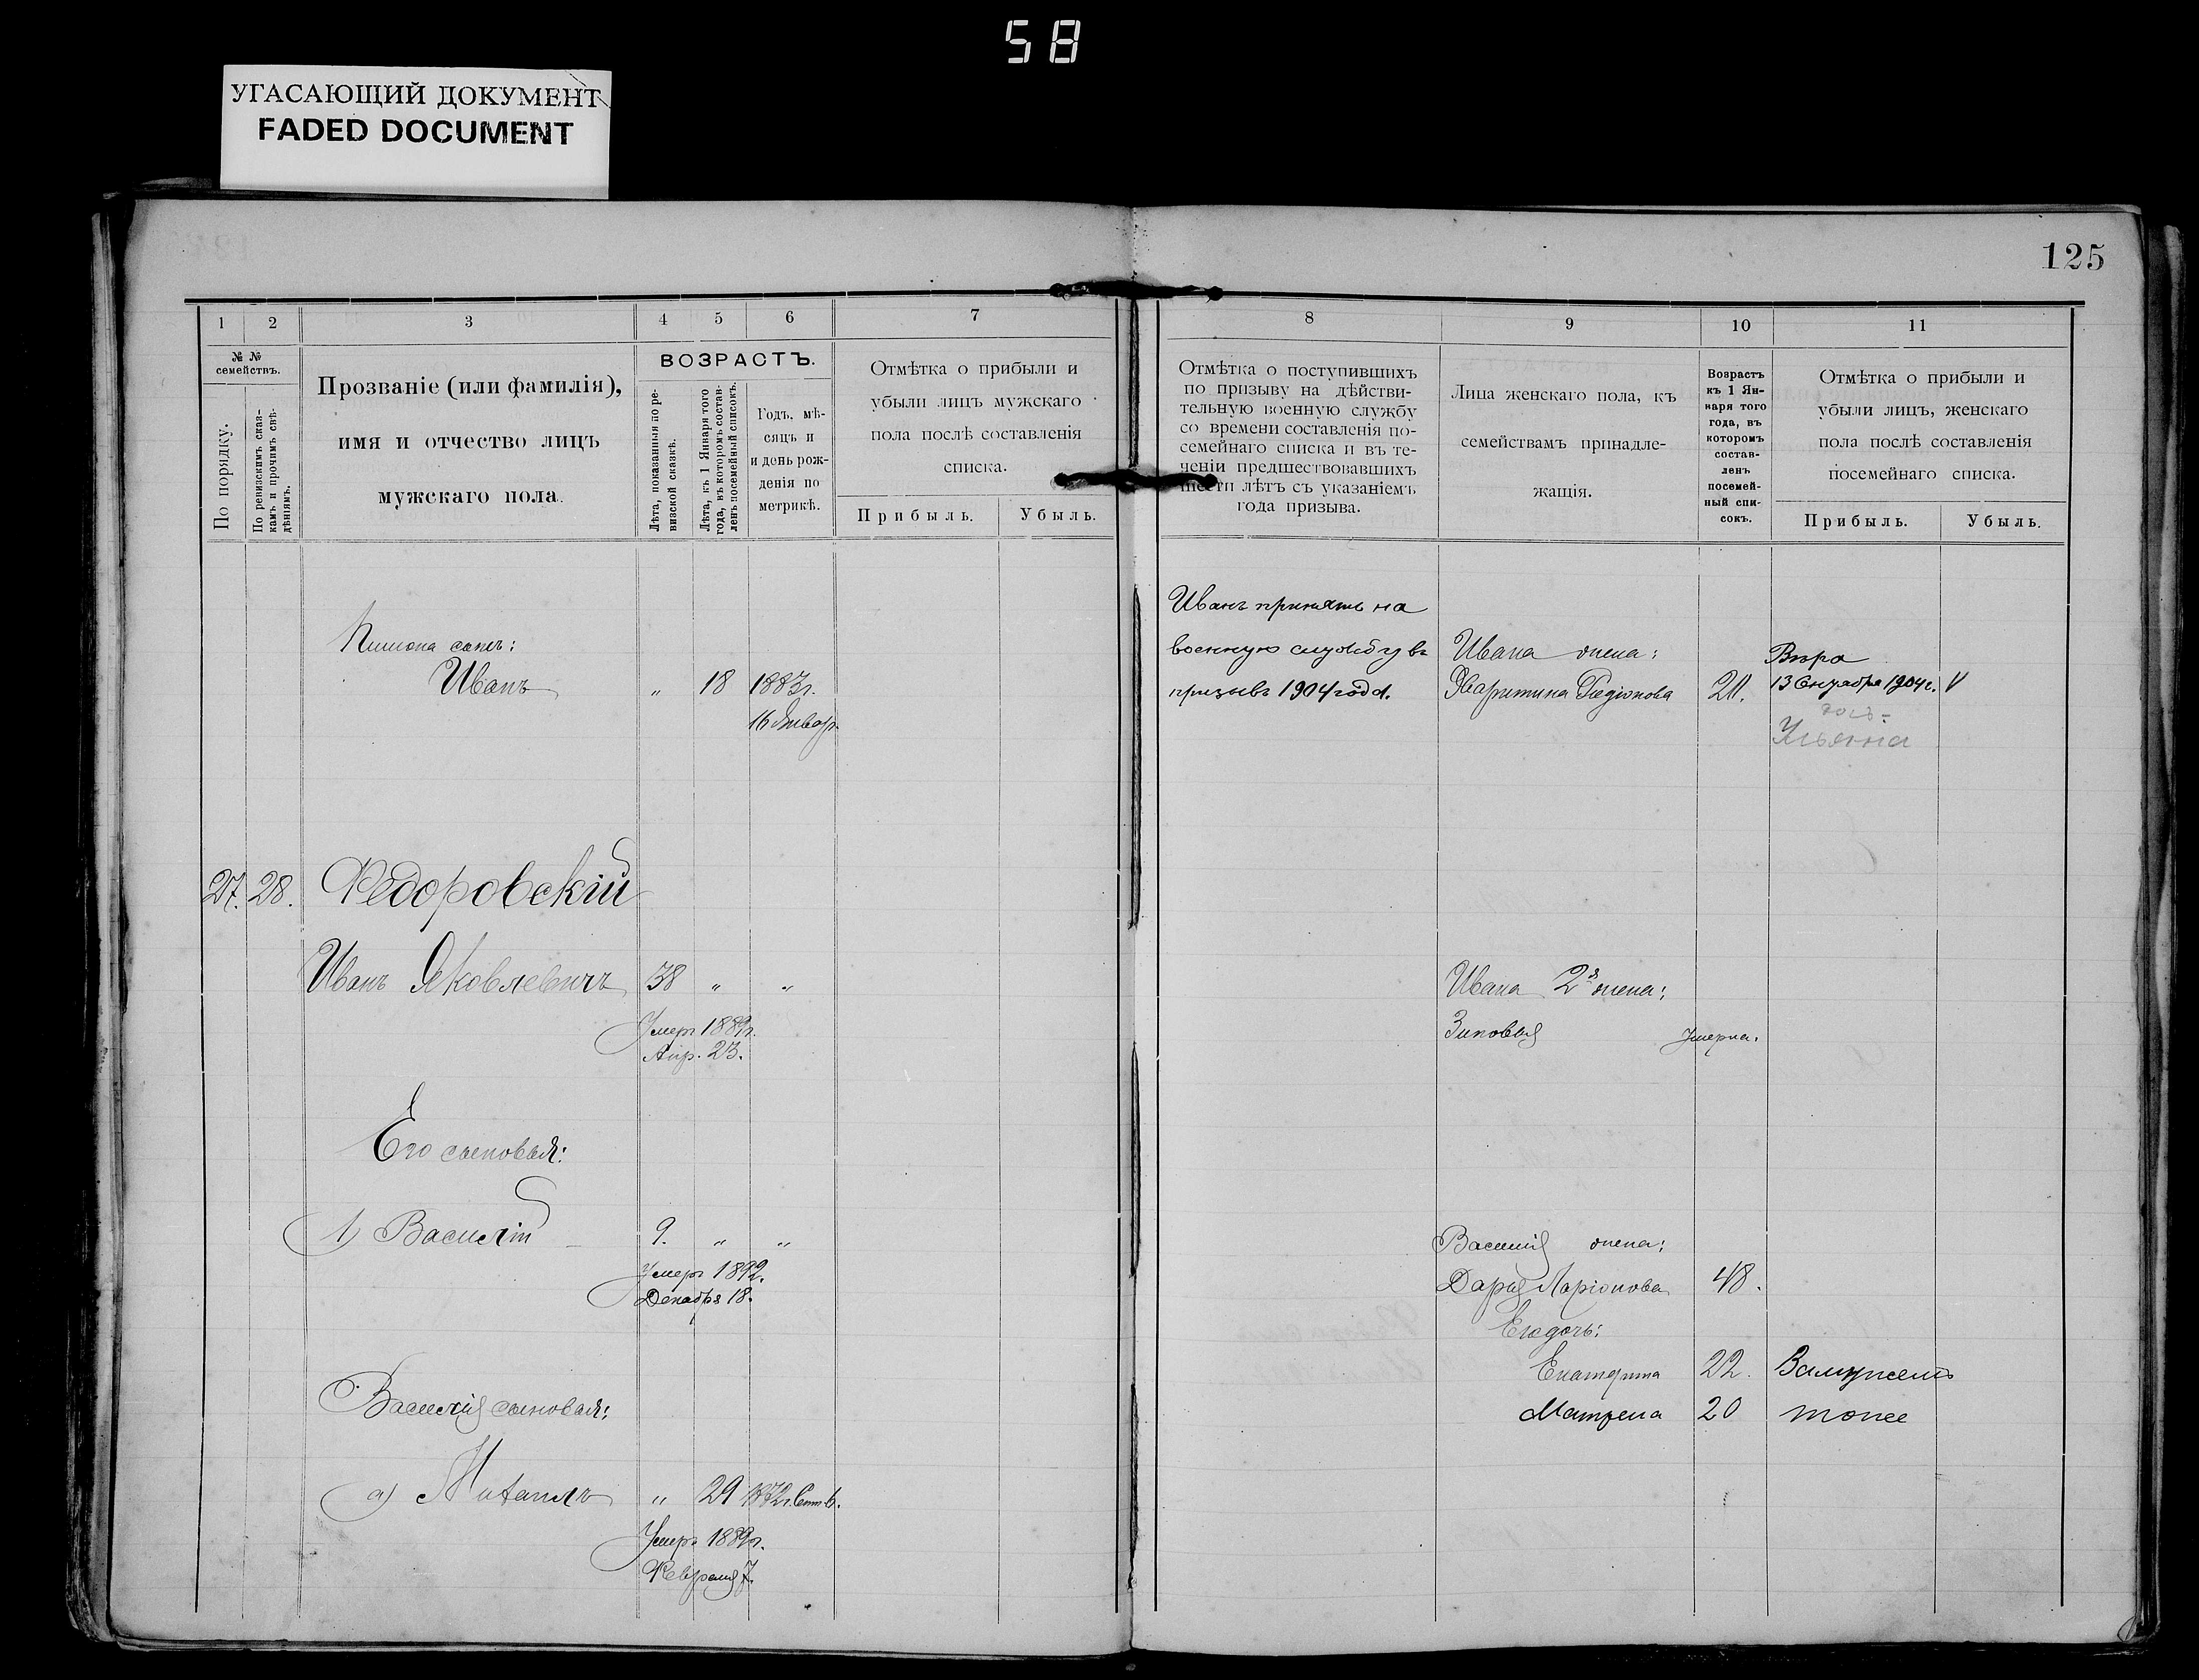 58
УГАСАЮЩИЙ ДОКУМЕНТ
FADED DOCUMENT
125
1 2 3 4 5 6 7
№ №
семействъ.
По порядку.
По ревизскимъ сказкамъ и прочимъ свѣдѣніямъ.
Прозваніе (или фамилія),
имя и отчество лицъ
мужскаго пола.
ВОЗРАСТЪ.
Лѣта, показанныя по ревизской сказкѣ.
Лѣта, къ 1 Января того года, въ которомъ составленъ посемейный списокъ.
Годъ, мѣ-
сяцъ и
и день рож-
денія по
метрикѣ.
Отмѣтка о прибыли и
убыли лицъ мужскаго
пола послѣ составленія
списка.
Прибыль. Убыль.
сынъ:
Иванъ „ 18 1883г.
16 Январ.
27. 28. Федоровскій
Иванъ Яковлевичъ 38 „ „
Умеръ 1889г.
Апр. 23.
Его сыновья:
1) Василій 9. „ „
Умеръ 1892.
Декабря 18.
Василія сыновья:
а) Михаилъ „ 29 1872г.
Умеръ 1889г.
Февраля 7.
8 9 10 11
Отмѣтка о поступившихъ
по призыву на дѣйстви-
тельную военную службу
со времени составленія по-
семейнаго списка и въ те-
ченіи предшествовавшихъ
шести лѣтъ съ указаніемъ
года призыва.
Лица женскаго пола, къ
семействамъ принадле-
жащія.
Возрастъ
къ 1 Ян-
варя того
года, въ
которомъ
состав-
ленъ
посемей-
ный спи-
сокъ.
Отмѣтка о прибыли и
убыли лицъ, женскаго
пола послѣ составленія
посемейнаго списка.
Прибыль. Убыль.
Иванъ принятъ на
военную службу въ
призывъ 1904 года.
Ивана жена:
Харитина Родіонова 20.
Вѣра
13 Сентября 1904г. V
дочь-
Ульяна
Ивана 2я жена:
Зиновья Умерла.
Василія жена:
Дарья Ларіонова 48.
Его дочь:
Екатерина 22. Замужемъ
Матрена 20 тоже